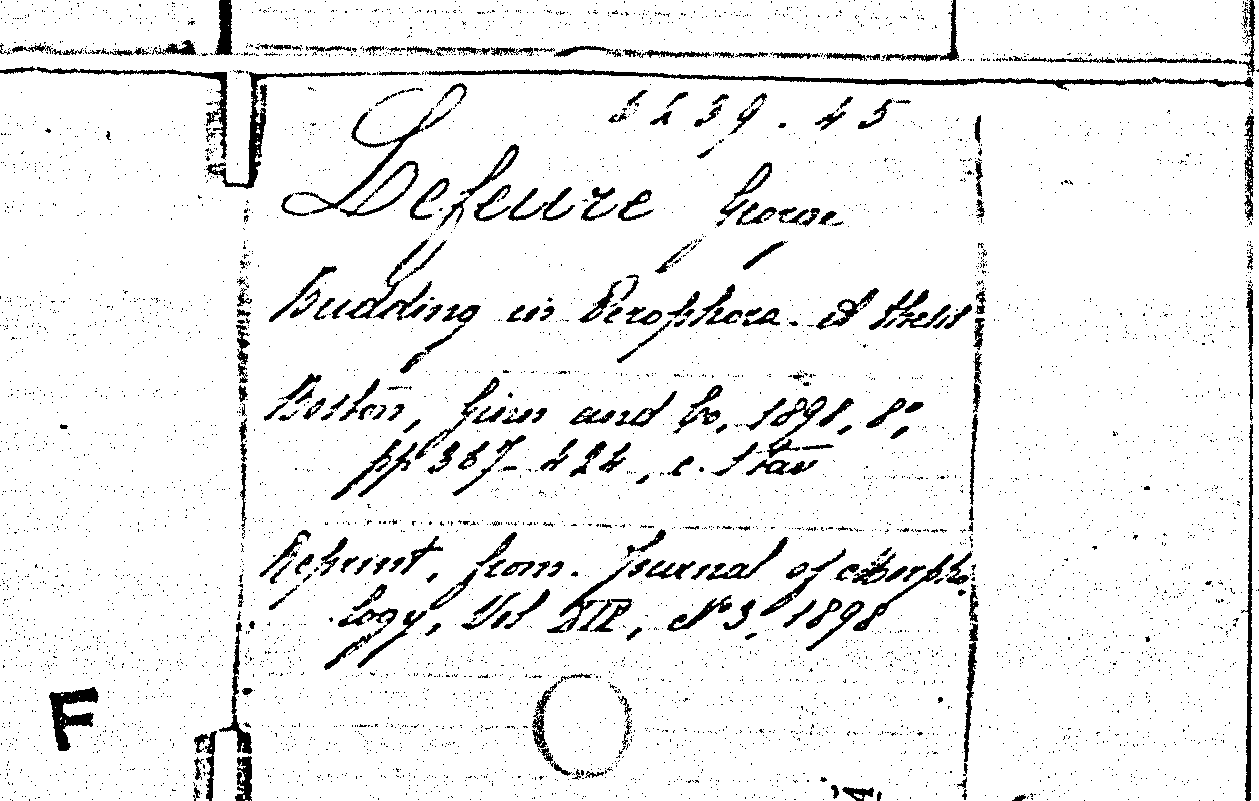 5239.45
Lefevre George
Budding in Perophora. A thesis
Boston, Ginn and Co, 1898, 8°,
pp 367-424, c. 1 tav
Reprint, from. Journal of Morpho
logy, Vol XIV, No 3, 1898
F